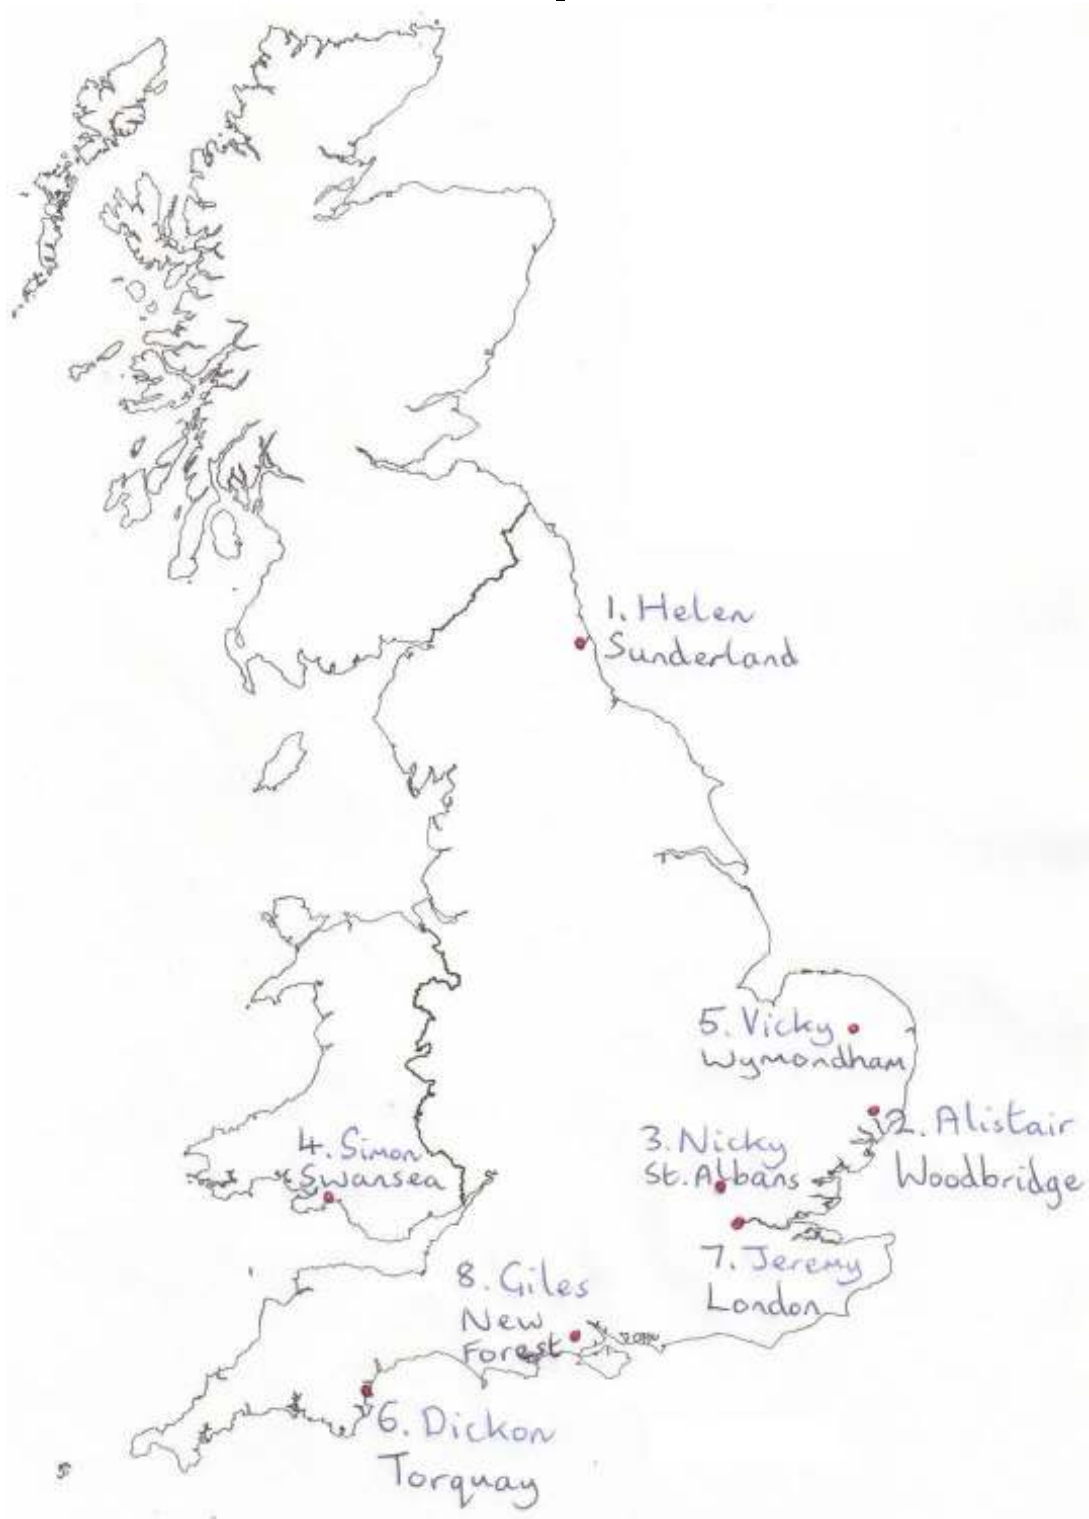 1. Helen
Sunderland
5. Vicky
Wymondham
2. Alistair
Woodbridge
3. Nicky
St. Albans
4. Simon
Swansea
7. Jeremy
London
8. Giles
New
Forest
6. Dickon
Torquay